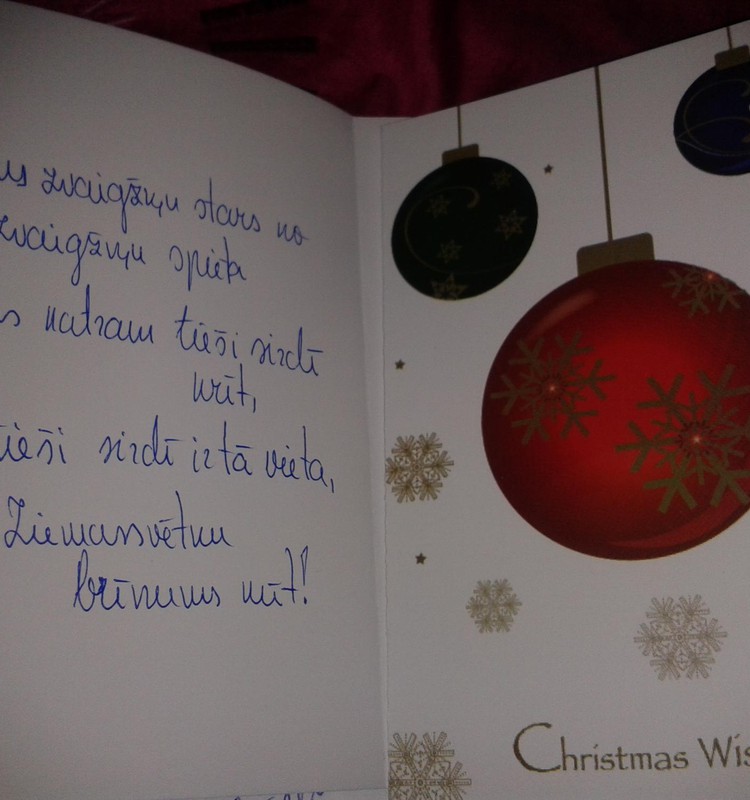 zvaigžņu stars no
zvaigžņu spieta
katram tieši sirdī
krīt,
tieši sirdī ir tā vieta,
Ziemassvētku
brīnums mīt!
Christmas Wis